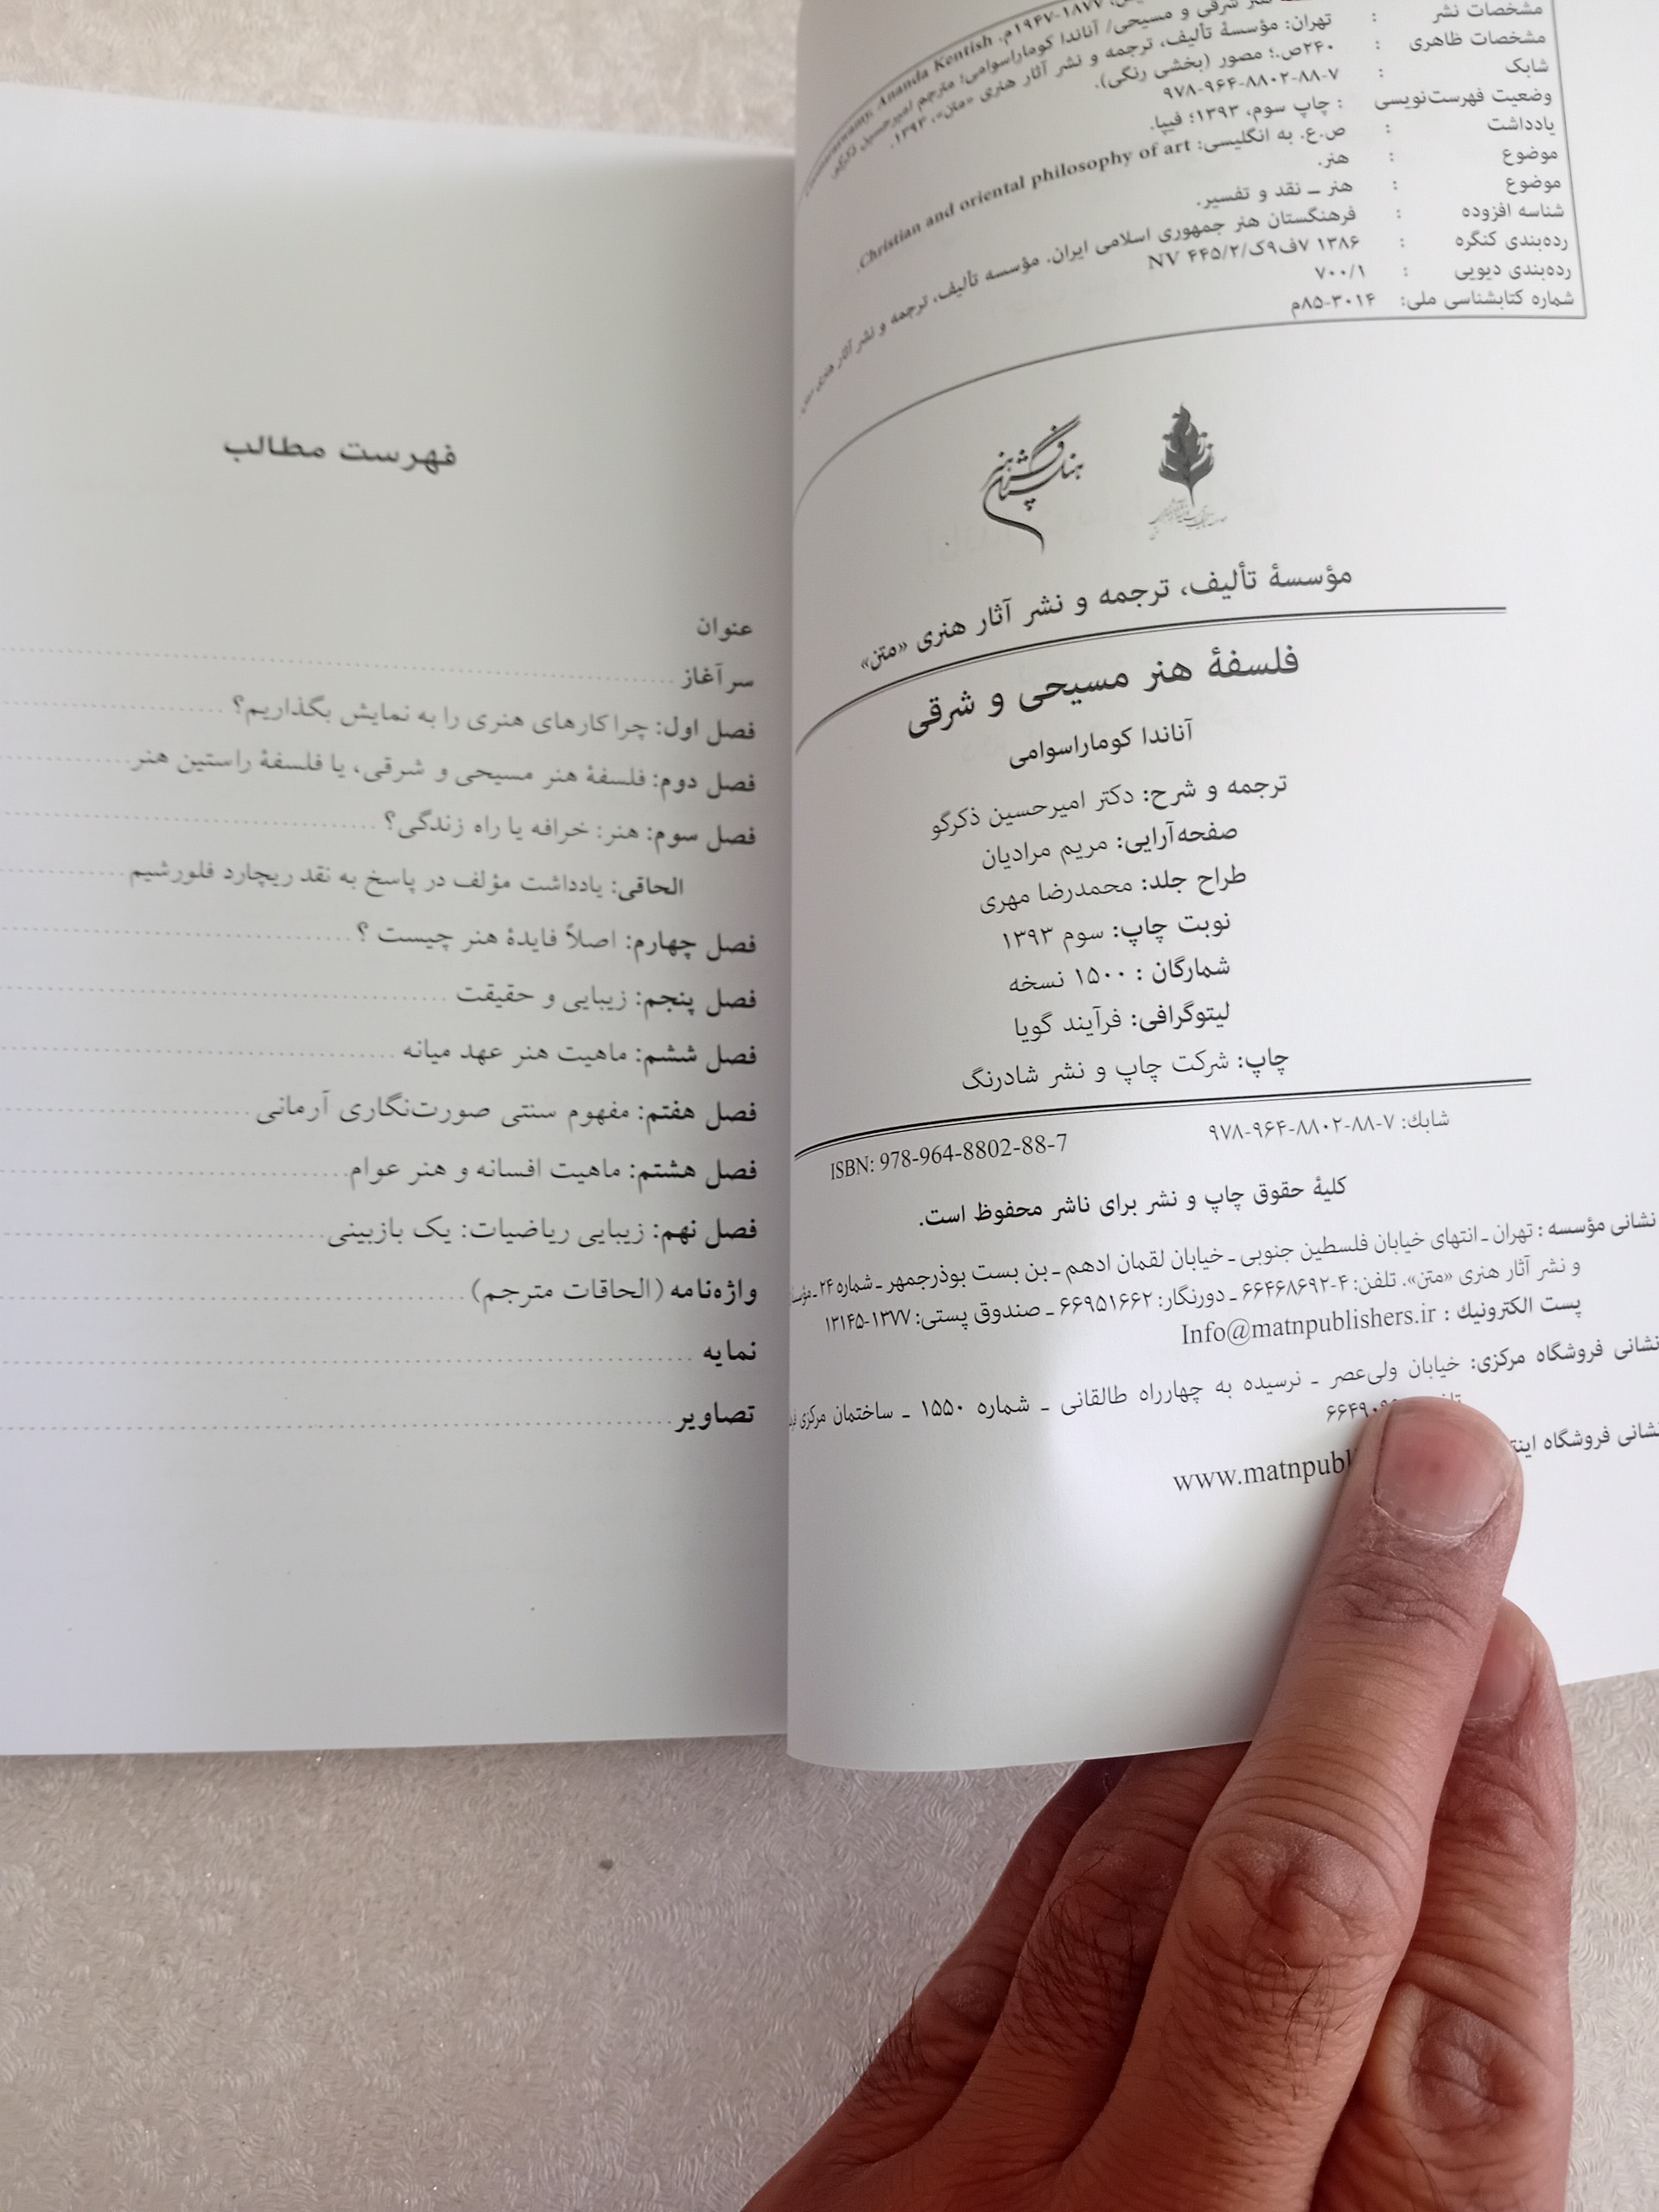 Coomaraswamy, Ananda Kentish، ۱۸۷۷-۱۹۴۷م.
هنر شرقی و مسیحی/ آناندا کوماراسوامی؛ مترجم امیرحسین ذکرگو
مشخصات نشر : تهران: مؤسسهٔ تألیف، ترجمه و نشر آثار هنری «متن»، ۱۳۹۳.
مشخصات ظاهری : ۲۴۰ص.؛ مصور (بخشی رنگی).
شابک : ۹۷۸-۹۶۴-۸۸۰۲-۸۸-۷
وضعیت فهرست‌نویسی : چاپ سوم، ۱۳۹۳؛ فیپا.
یادداشت : ص.ع. به انگلیسی: Christian and oriental philosophy of art.
موضوع : هنر.
موضوع : هنر ــ نقد و تفسیر.
شناسه افزوده : فرهنگستان هنر جمهوری اسلامی ایران. مؤسسه تألیف، ترجمه و نشر آثار هنری
رده‌بندی کنگره : ۱۳۸۶ ۷ف۹ک/۲/۴۴۵ NV
رده‌بندی دیویی : ۷۰۰/۱
شماره کتابشناسی ملی: ۳۰۱۴-۸۵م
فرهنگستان هنر
مؤسسهٔ تألیف، ترجمه و نشر آثار هنری «متن»
فلسفهٔ هنر مسیحی و شرقی
آناندا کوماراسوامی
ترجمه و شرح: دکتر امیرحسین ذکرگو
صفحه‌آرایی: مریم مرادیان
طراح جلد: محمدرضا مهری
نوبت چاپ: سوم ۱۳۹۳
شمارگان : ۱۵۰۰ نسخه
لیتوگرافی: فرآیند گویا
چاپ: شرکت چاپ و نشر شادرنگ
شابك: ۷-۸۸-۸۸۰۲-۹۶۴-۹۷۸
ISBN: 978-964-8802-88-7
کلیهٔ حقوق چاپ و نشر برای ناشر محفوظ است.
نشانی مؤسسه : تهران ـ انتهای خیابان فلسطین جنوبی ـ خیابان لقمان ادهم ـ بن بست بوذرجمهر ـ شماره ۲۴ ـ
و نشر آثار هنری «متن». تلفن: ۴-۶۶۴۶۸۶۹۲ ـ دورنگار: ۶۶۹۵۱۶۶۲ ـ صندوق پستی: ۱۳۷۷-۱۳۱۴۵
پست الکترونیك : Info@matnpublishers.ir
نشانی فروشگاه مرکزی: خیابان ولی‌عصر ـ نرسیده به چهارراه طالقانی ـ شماره ۱۵۵۰ ـ ساختمان مرکزی
نشانی فروشگاه
www.matnpubl
فهرست مطالب
عنوان
سرآغاز
فصل اول: چرا کارهای هنری را به نمایش بگذاریم؟
فصل دوم: فلسفهٔ هنر مسیحی و شرقی، یا فلسفهٔ راستین هنر
فصل سوم: هنر: خرافه یا راه زندگی؟
الحاقی: یادداشت مؤلف در پاسخ به نقد ریچارد فلورشیم
فصل چهارم: اصلاً فایدهٔ هنر چیست ؟
فصل پنجم: زیبایی و حقیقت
فصل ششم: ماهیت هنر عهد میانه
فصل هفتم: مفهوم سنتی صورت‌نگاری آرمانی
فصل هشتم: ماهیت افسانه و هنر عوام
فصل نهم: زیبایی ریاضیات: یک بازبینی
واژه‌نامه (الحاقات مترجم)
نمایه
تصاویر